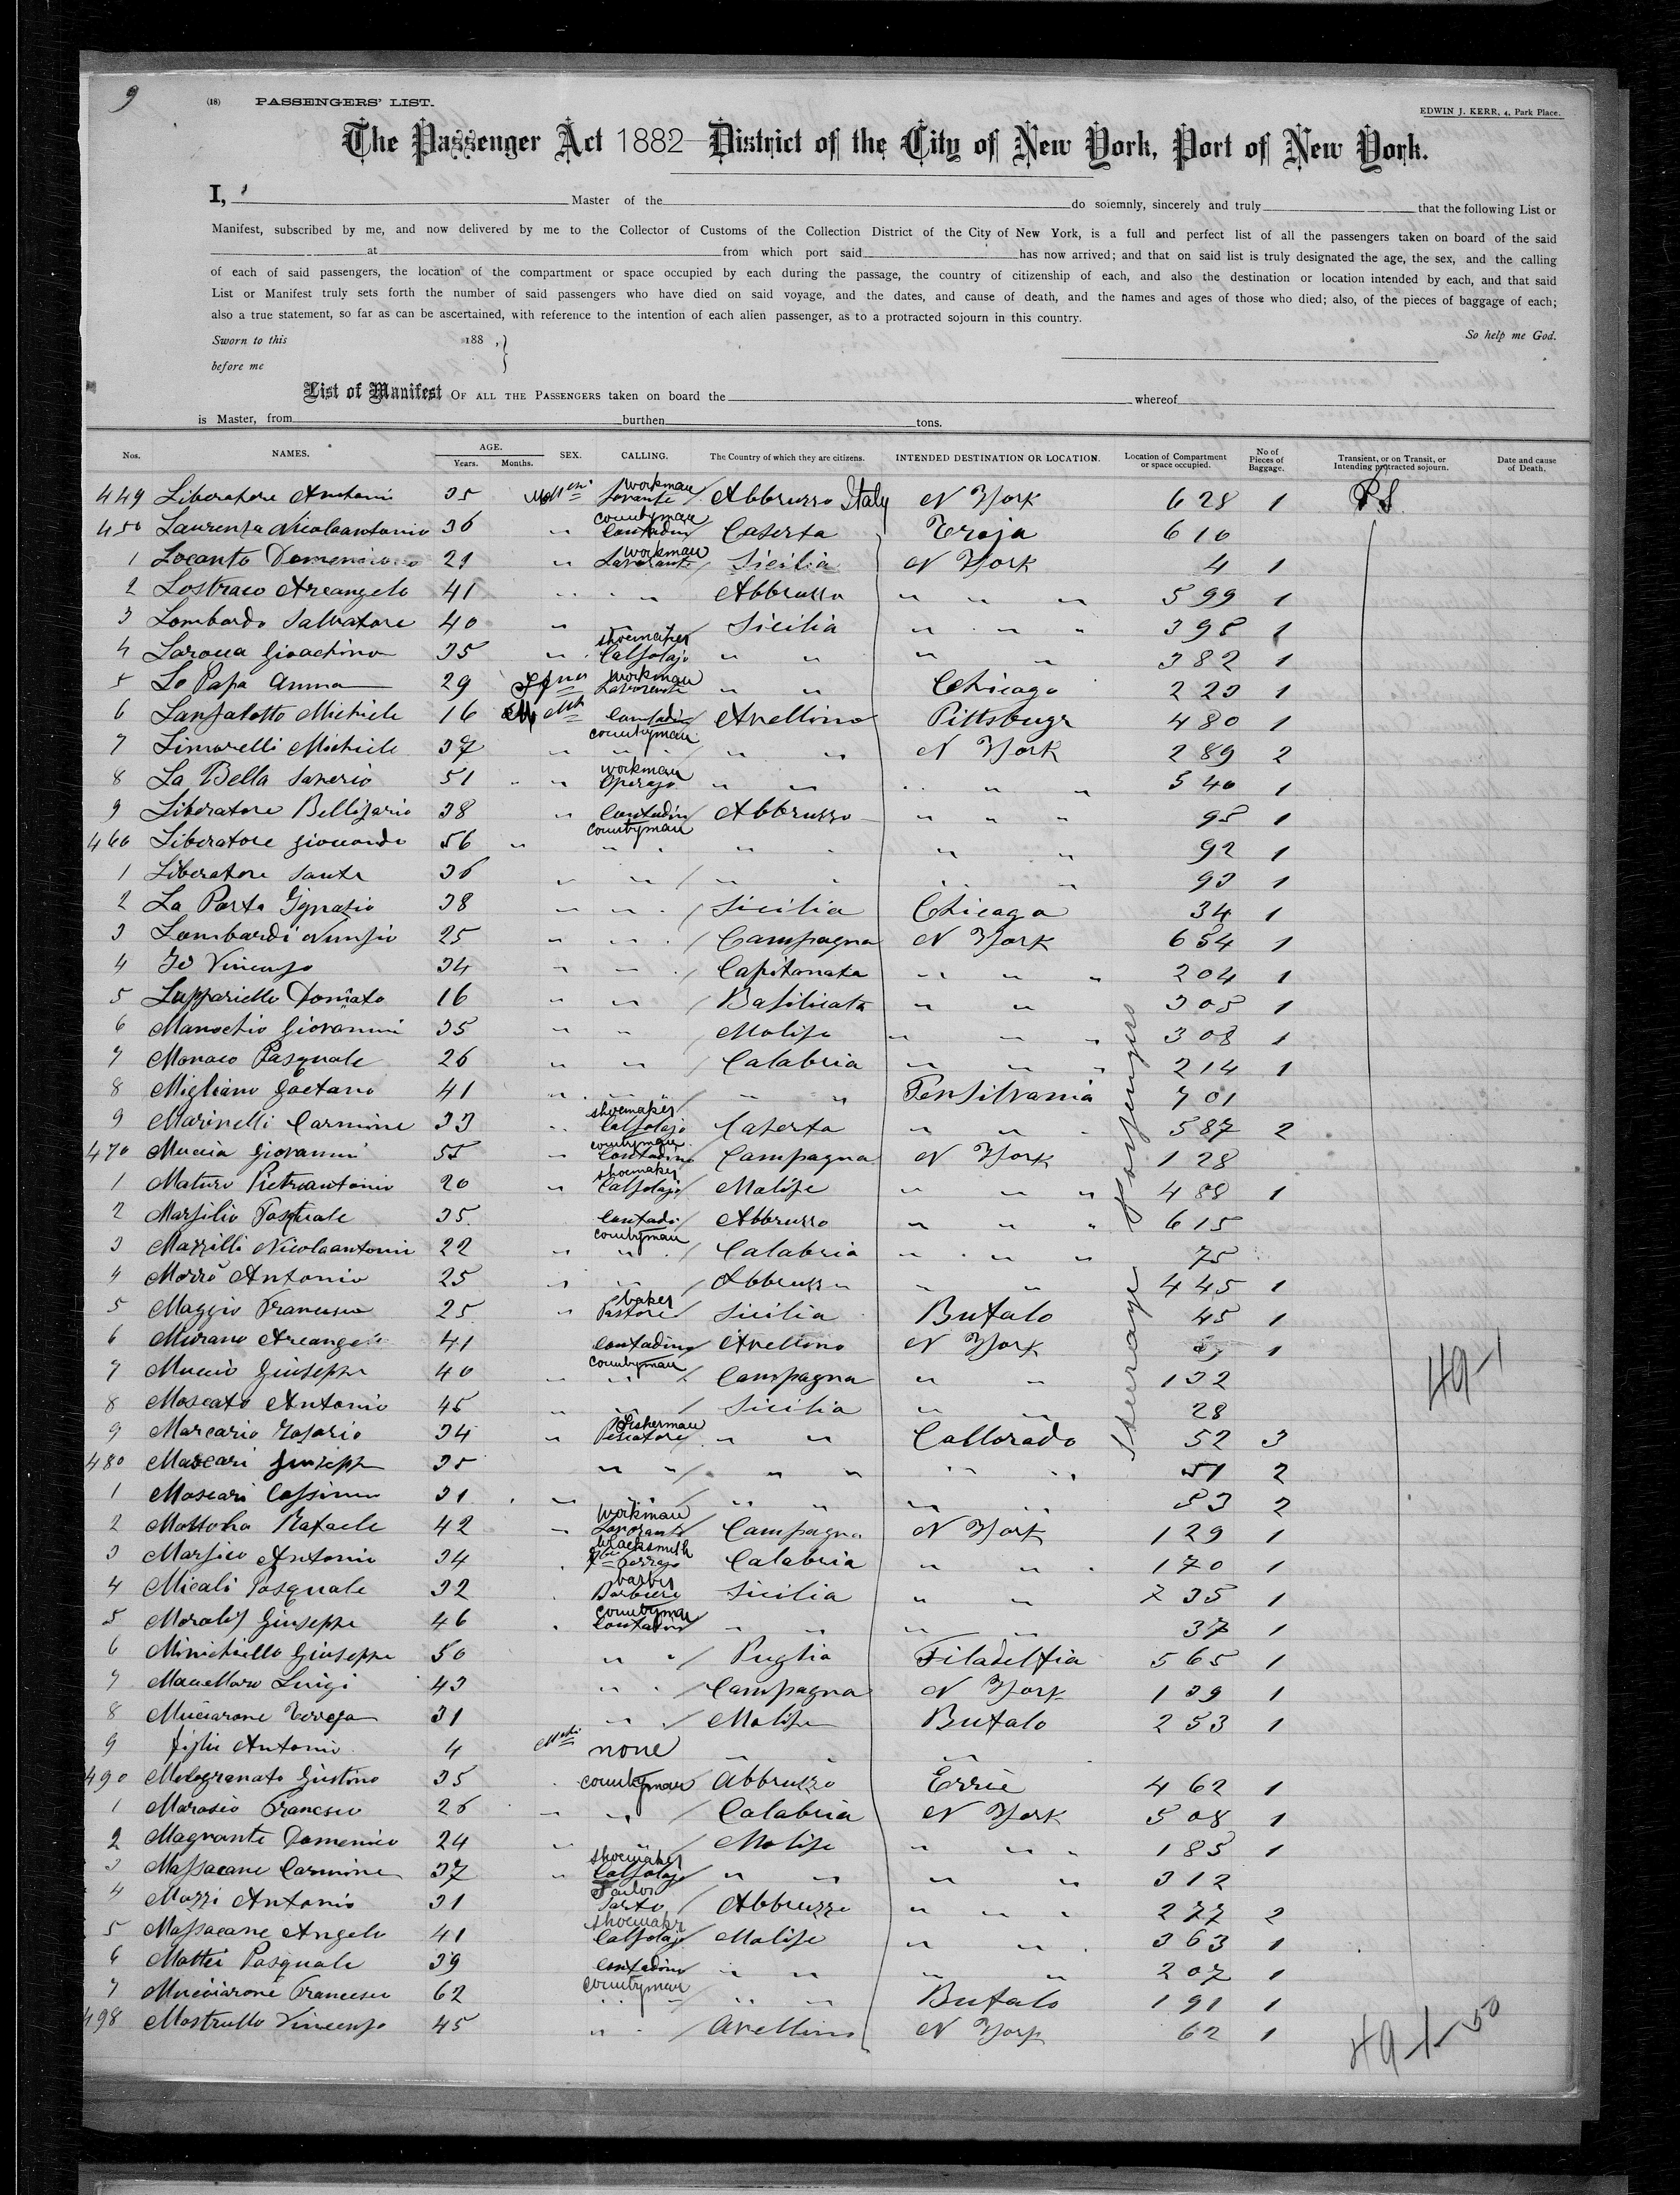 9
(18) PASSENGERS' LIST.
EDWIN J. KERR, 4, Park Place.
The Passenger Act 1882 District of the City of New York, Port of New York.
I, Master of the do solemnly, sincerely and truly that the following List or
Manifest, subscribed by me, and now delivered by me to the Collector of Customs of the Collection District of the City of New York, is a full and perfect list of all the passengers taken on board of the said
at from which port said has now arrived; and that on said list is truly designated the age, the sex, and the calling
of each of said passengers, the location of the compartment or space occupied by each during the passage, the country of citizenship of each, and also the destination or location intended by each, and that said
List or Manifest truly sets forth the number of said passengers who have died on said voyage, and the dates, and cause of death, and the names and ages of those who died; also, of the pieces of baggage of each;
also a true statement, so far as can be ascertained, with reference to the intention of each alien passenger, as to a protracted sojourn in this country.
So help me God.
Sworn to this 188 , }
before me
List of Manifest OF ALL THE PASSENGERS taken on board the whereof
is Master, from burthen tons.
Nos. NAMES. AGE. Years. Months. SEX. CALLING. The Country of which they are citizens. INTENDED DESTINATION OR LOCATION. Location of Compartment or space occupied. No of Pieces of Baggage. Transient, or on Transit, or Intending protracted sojourn. Date and cause of Death.
449 Liberatore Antonio 35 workman Abbruzzo Italy N York 628 1
450 Laurenza Nicolaantonio 36 " countryman Contadin Caserta Troja 610
1 Locanto Domenico 29 " workman Lavorante Sicilia N York 4 1
2 Lostraco Arcangelo 41 " " " Abbruzzo " " " 599 1
3 Lombardo Salvatore 40 " " Sicilia " " " 398 1
4 Larocca Gioachino 35 " shoemaker Calzolajo " " " " 382 1
5 Lo Papa Anna 29 workman Lavorante " " Chicago 223 1
6 Lanzalotto Michiele 16 Contadin countryman Avellino Pittsburgr 480 1
7 Limarelli Michiele 37 " " " " " N York 289 2
8 La Bella Saverio 51 " workman Operajo " " " " " 540 1
9 Liberatore Bellizario 38 " Contadin countryman Abbruzzo " " " 95 1
460 Liberatore Giocondo 56 " " " " " " 92 1
1 Liberatore Sante 36 " " " " " 93 1
2 La Porta Ignazio 38 " " Sicilia Chicago 34 1
3 Lombardi Nunzio 25 " " Campagna N York 654 1
4 Vincenzo 34 " " Capitanata " " " 204 1
5 Luppariello Donato 16 " " Basilicata " " 305 1
6 Manochio Giovanni 35 " " Molise " " " 308 1
7 Monaco Pasquale 26 " " Calabria " " " 214 1
8 Migliano Gaetano 41 " " " " " Pensilvania 701
9 Marinelli Carmine 33 " shoemaker Calzolajo Caserta " " " 587 2
470 Muccia Giovanni 55 " countryman Contadino Campagna N York 128
1 Maturo Pietrantonio 20 " shoemaker Calzolajo Molise " " " 488 1
2 Marsilio Pasquale 35 Contadi countryman Abbruzzo " " " 615
3 Mazzilli Nicolaantonio 22 " " Calabria " " " 75
4 Morrò Antonio 25 " " Abbruzzo " " 445 1
5 Maggio Francesco 25 " baker Pastore Sicilia Bufalo 45 1
6 Murano Arcangelo 41 Contadino countryman Avellino N York 1
7 Muccio Giuseppe 40 " " Campagna " " 132
8 Moscato Antonio 45 " " Sicilia " " 28
9 Marcario Rosario 34 " Fisherman Pescatore " " Callorado 52 3
480 Mascari Giuseppe 35 " " " " " " " 51 2
1 Mascari Cossimo 31 " " " " " " 53 2
2 Mottola Rafaele 42 " workman Lavorante Campagna N York 129 1
3 Marsico Antonio 34 blacksmith Ferrajo Calabria " " " 170 1
4 Micali Pasquale 32 barber Barbiere Sicilia " " 235 1
5 Giuseppe 46 countryman Contadin " " " " 37 1
6 Minichiello Giuseppe 50 " " Puglia Filadelfia 565 1
7 Macellaro Luigi 43 " " Campagna N York 139 1
8 Mucciarone Teresa 31 " " Molise Bufalo 253 1
9 figlio Antonio 4 none " " "
490 Melogranato Giustino 35 countryman Abbruzzo Errie 462 1
1 Marasio Francesco 26 " " Calabria N York 508 1
2 Magnante Domenico 24 " " Molise " " " 185 1
3 Massacane Carmine 37 " shoemaker Calzolajo " " " " 312
4 Mazzi Antonio 31 Tailor Sarto Abbruzzo " " " 277 2
5 Massacane Angelo 41 shoemaker Calzolajo Molise " " 363 1
6 Mattei Pasquale 39 Contadino countryman " " " " 207 1
7 Mucciarone Francesco 62 " " " " Bufalo 191 1
498 Mastrullo Vincenzo 45 " " Avellino N York 62 1
Steerage passengers
49-1
49-1-50